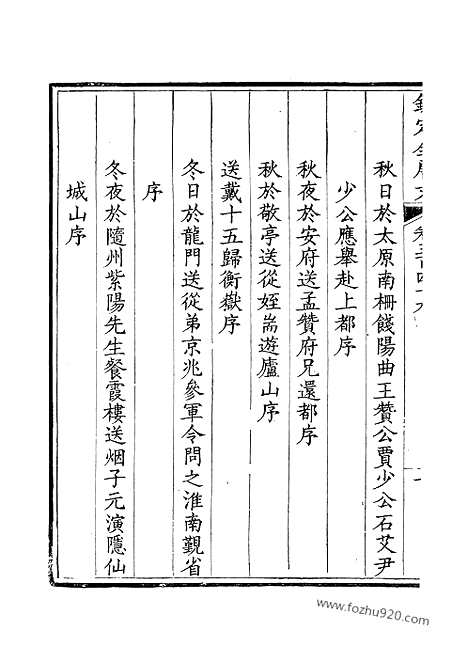 欽定全唐文
卷三百四十九
秋日於太原南柵餞陽曲王贊公賈少公石艾尹
少公應舉赴上都序
秋夜於安府送孟贊府兄還都序
秋於敬亭送從姪耑遊廬山序
送戴十五歸衡嶽序
冬日於龍門送從弟京兆參軍令問之淮南覲省
序
冬夜於隨州紫陽先生餐霞樓送烟子元演隱仙
城山序
www.fozhu920.com